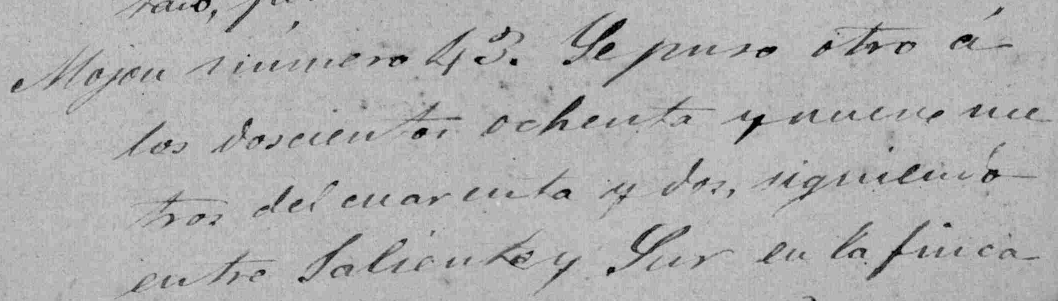 Mojon número 43. Se puso otro á
los doscientos ochenta y nueve me
tros del cuarenta y dos, siguiendo
entre Saliente y Sur en la finca